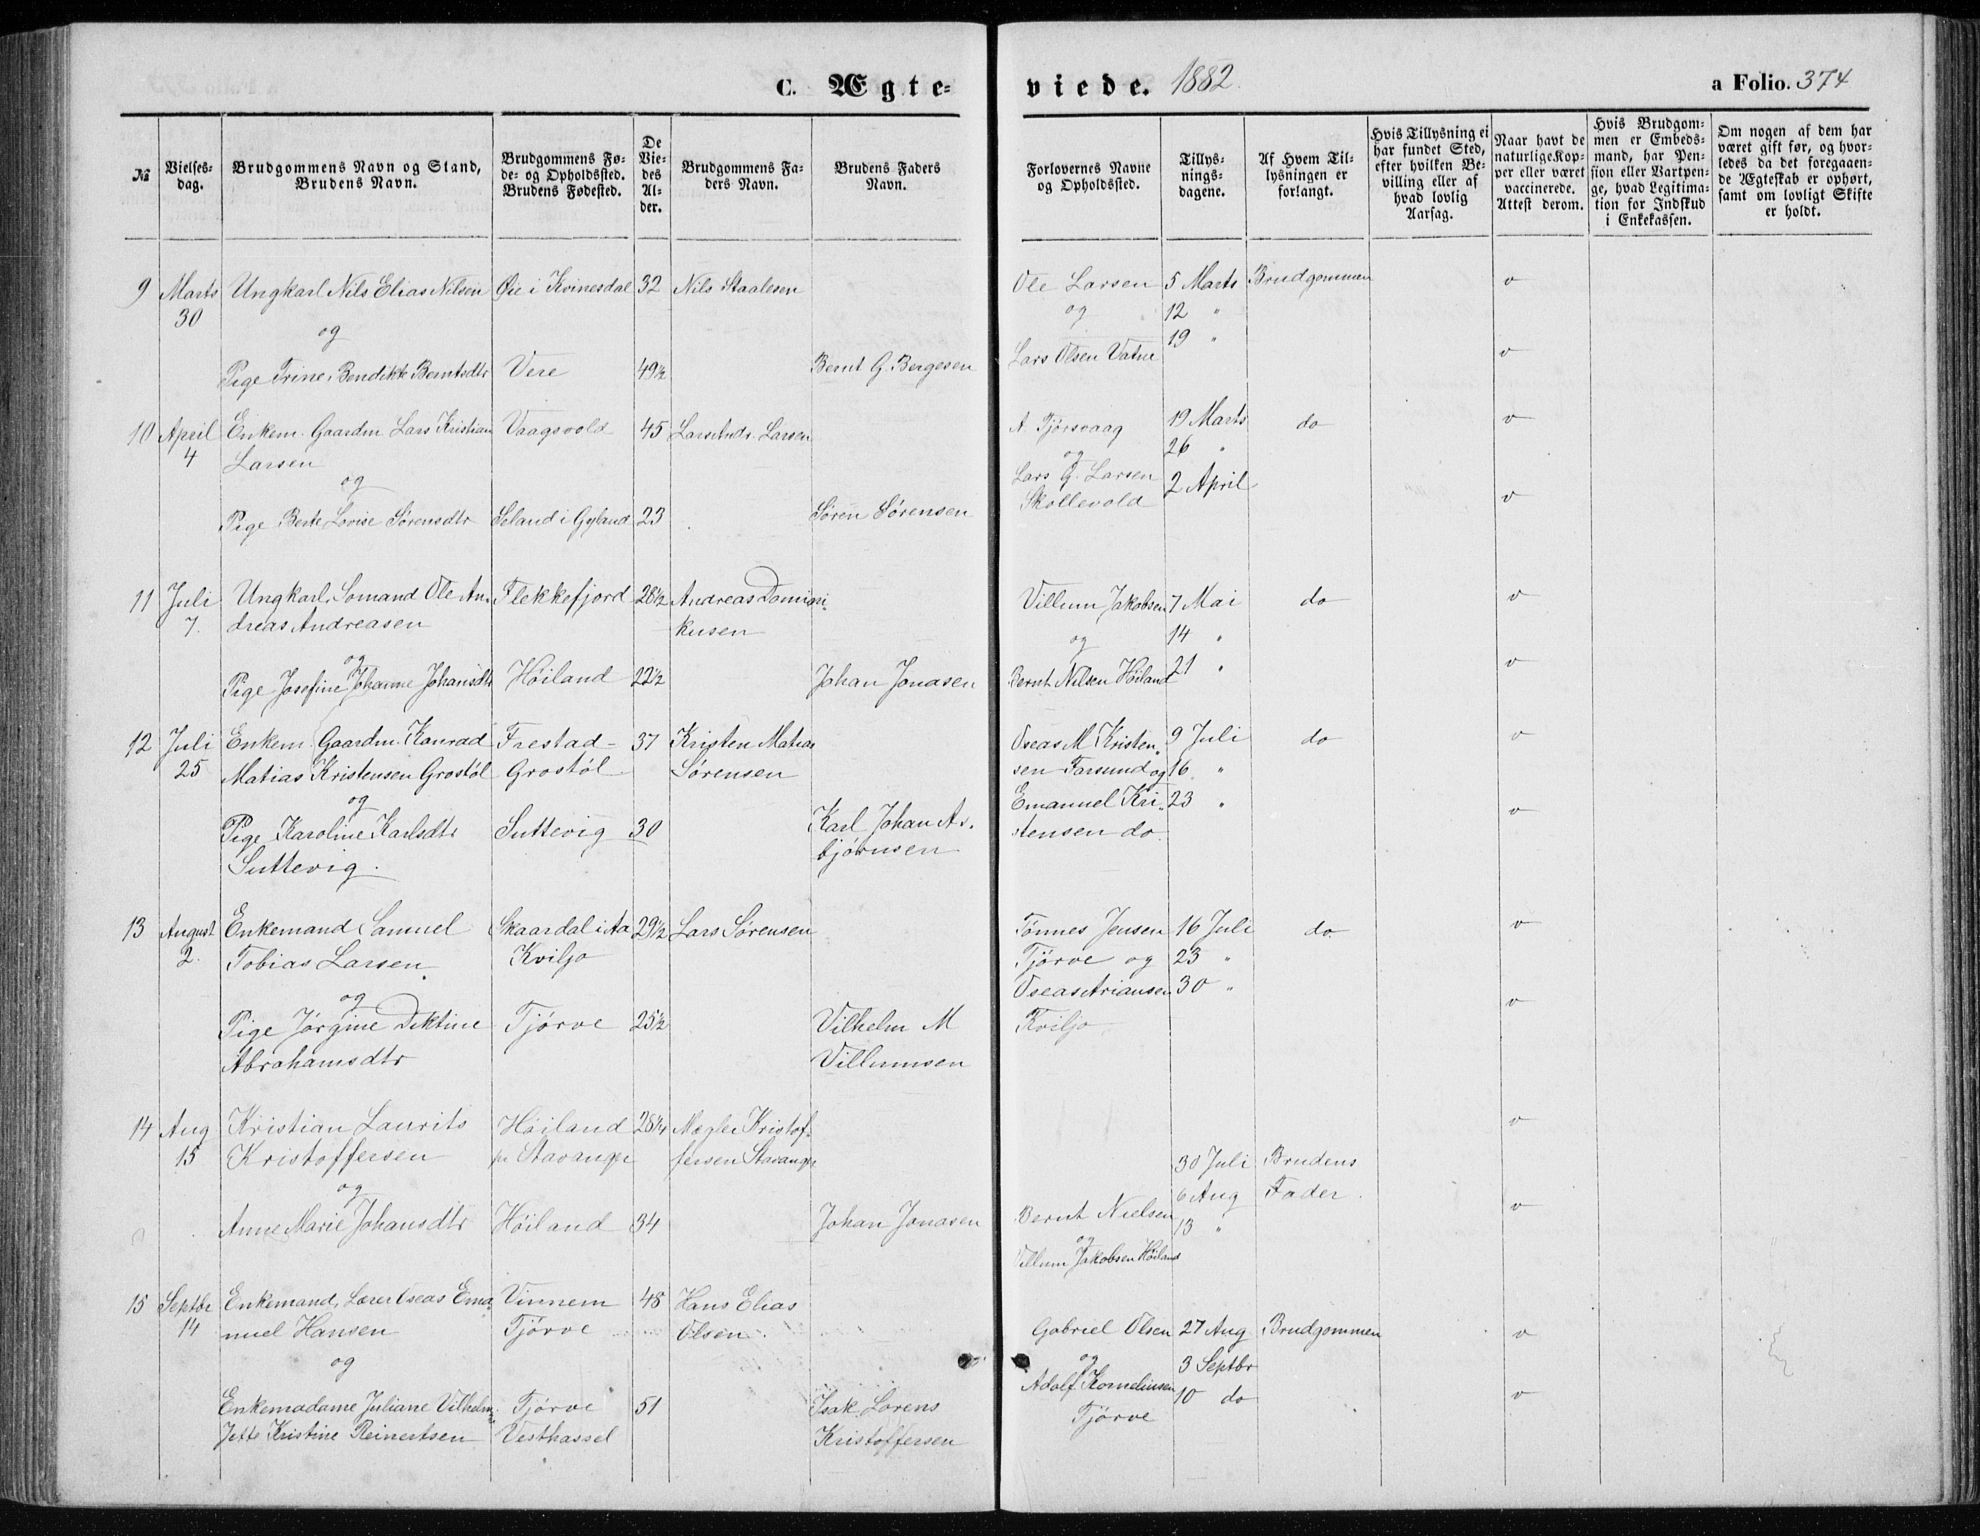 C. Ægte=
viede. 1882.
a Folio. 374
№
Vielses-
dag.
Brudgommens Navn og Stand,
Brudens Navn.
Brudgommens Fø-
de- og Opholdssted.
Brudens Fødested.
De
Vie-
des
Al-
der.
Brudgommens Fa-
ders Navn.
Brudens Faders
Navn.
Forlovernes Navne
og Opholdssted.
Tillys-
nings-
dagene.
Af Hvem Til-
lysningen er
forlangt.
Hvis Tillysning ei
har fundet Sted,
efter hvilken Be-
villing eller af
hvad lovlig
Aarsag.
Naar havt de
naturlige Kop-
per eller været
vaccinerede.
Attest derom.
Hvis Brudgom-
men er Embeds-
mand, har Pen-
sion eller Vartpen-
ge, hvad Legitima-
tion for Indskud
i Enkekassen.
Om nogen af dem har
været gift før, og hvor-
ledes da det foregaaen-
de Ægteskab er ophørt,
samt om lovligt Skifte
er holdt.
9 Marts Ungkarl Nils Elias Nilsen Øie i Kvinesdal 32 Nils Staalesen Ole Larsen 5 Marts Brudgommen v
30 og og 12 "
19 "
Pige Trine Bendikte Berntsdtr Vere 49½ Bernt G. Bergesen Lars Olsen Vatne v
10 April Enkem. Gaardm Lars Kristian Vaagsvold 45 Lars Andr. Larsen A Tjørsvaag 19 Marts do v
4 Larsen og 26 "
og Lars G. Larsen 2 April
Pige Berte Lovise Sørensdtr Seland i Gyland 23 Søren Sørensen Skollevold v
11 Juli Ungkarl, Sømand Ole An- Flekkefjord 28½ Andreas Domini- Villum Jakobsen 7 Mai do v
7. dreas Andreasen kusen og 14 "
og
Pige Josefine Johanne Johansdtr Høiland 22½ Johan Jonasen Bernt Nilsen Høiland 21 " v
12 Juli Enkem. Gaardm. Konrad Frestad- 37 Kristen Matias Oseas M Kristen- 9 Juli do v
25 Matias Kristensen Grostøl Grostøl Sørensen sen Farsund og 16 "
og Emanuel Kri- 23 "
Pige Karoline Karlsdtr Suttevig 30 Karl Johan As- stensen do v
Suttevig. bjørnsen
13 August Enkemand Samuel Skaardal i Aa 29½ Lars Sørensen Tønnes Jensen 16 Juli do v
2. Tobias Larsen Kviljo Tjørve og 23 "
og Oseas Ariansen 30 "
Pige Jørgine Diktine Tjørve 25½ Vilhelm M Kviljo v
Abrahamsdtr Villumsen
14 Aug Kristian Laurits Høiland 28¼ Mægler Kristof- v
15 Kristoffersen Stavanger fersen Stavanger 30 Juli Brudens
og 6 Aug Fader.
Anne Marie Johansdtr Høiland 34 Johan Jonasen Bernt Nielsen 13 " v
og
Villum Jakobsen Høiland
15 Septbr Enkemand, Lærer Oseas Ema- Vinnem 48 Hans Elias
14 nuel Hansen Tjørve Olsen Gabriel Olsen 27 Aug Brudgommen v
og og 3 Septbr
Enkemadame Juliane Vilhelm- Tjørve 51 Isak Lorens Adolf Kornelinsen 10 do v
Jette Kristine Reinertsen Vesthassel Kristoffersen Tjørve